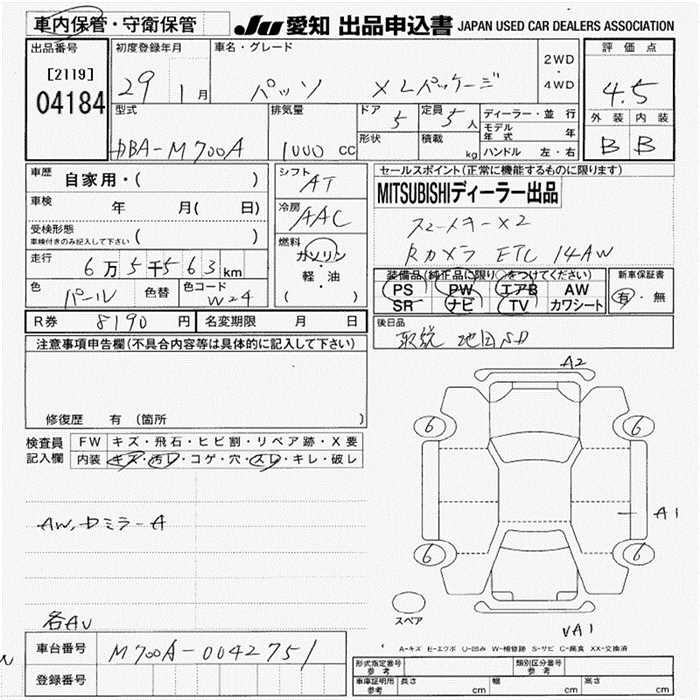 車内保管・守衛保管
JU 愛知 出品申込書 JAPAN USED CAR DEALERS ASSOCIATION
出品番号
[2119]
04184
初度登録年月
29 1月
車名・グレード
パッソ XLパッケージ
2WD
・
4WD
評価点
4.5
外装 内装
B B
型式
DBA-M700A
排気量
1000 CC
ドア
5
形状
定員
5人
積載
kg
ディーラー・並行
モデル年式 年
ハンドル 左・右
車歴
自家用・( )
車検
年 月( 日)
受検形態
車検付きのみ記入して下さい ( )
走行
6万5千563km
色
パール
色替
色コード
W24
シフト
AT
冷房
AAC
燃料
ガソリン
・
軽・油
( )
セールスポイント(正常に機能するものに限ります)
MITSUBISHIディーラー出品
スマートキー×2
Rカメラ ETC 14AW
装備品(純正品に限り○をつけてください)
PS PW エアB AW
SR ナビ TV カワシート
新車保証書
有・無
R券 8190円
名変期限 月 日
後日品
取説 地図SD
注意事項申告欄(不具合内容等は具体的に記入して下さい)
修復歴 有 (箇所 )
検査員
記入欄
FW キズ・飛石・ヒビ割・リペア跡・X要
内装 キズ・汚レ・コゲ・穴・スレ・キレ・破レ
AW,ドミラーA
各AU
A2
6 6
A1
6 6
スペア
VA1
A-キズ E-エクボ U-凹み W-補修跡 S-サビ C-腐食 XX-交換済
車台番号 M700A-0042751
登録番号
形式指定番号
参考
類別区分番号
参考
車庫証明用
参考
長さ cm 幅 cm 高さ cm